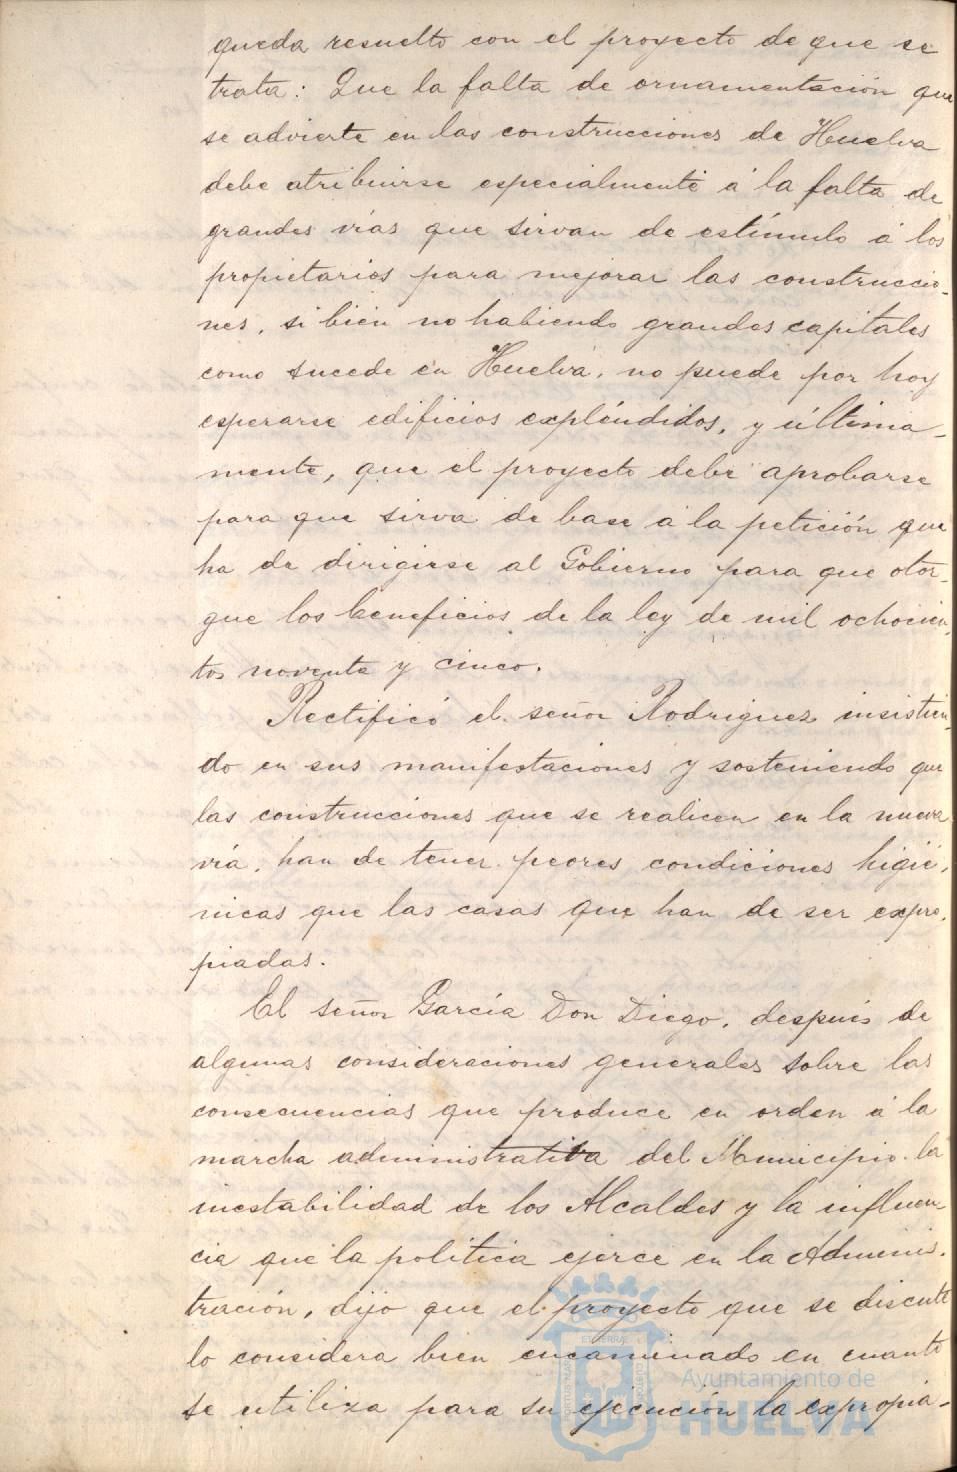 queda resuelto con el proyecto de que se
trata: Que la falta de ornamentación que
se advierte en las construcciones de Huelva
debe atribuirse especialmente á la falta de
grandes vías que sirvan de estímulo á los
propietarios para mejorar las construccio-
nes, si bien no habiendo grandes capitales
como sucede en Huelva, no puede por hoy
esperarse edificios expléndidos, y última-
mente, que el proyecto debe aprobarse
para que sirva de base á la petición que
ha de dirigirse al Gobierno para que otor-
gue los beneficios de la ley de mil ochocien-
tos noventa y cinco.
Rectificó el señor Rodriguez insistien-
do en sus manifestaciones y sosteniendo que
las construcciones que se realicen en la nueva
vía, han de tener peores condiciones higié-
nicas que las casas que han de ser expro-
piadas.
El señor García Don Diego, después de
algunas consideraciones generales sobre las
consecuencias que produce en orden á la
marcha administrativa del Municipio la
inestabilidad de los Alcaldes y la influen-
cia que la política ejerce en la Adminis-
tración, dijo que el proyecto que se discute
lo considera bien encaminado en cuanto
se utiliza para su ejecución la expropia-
Ayuntamiento de
HUELVA